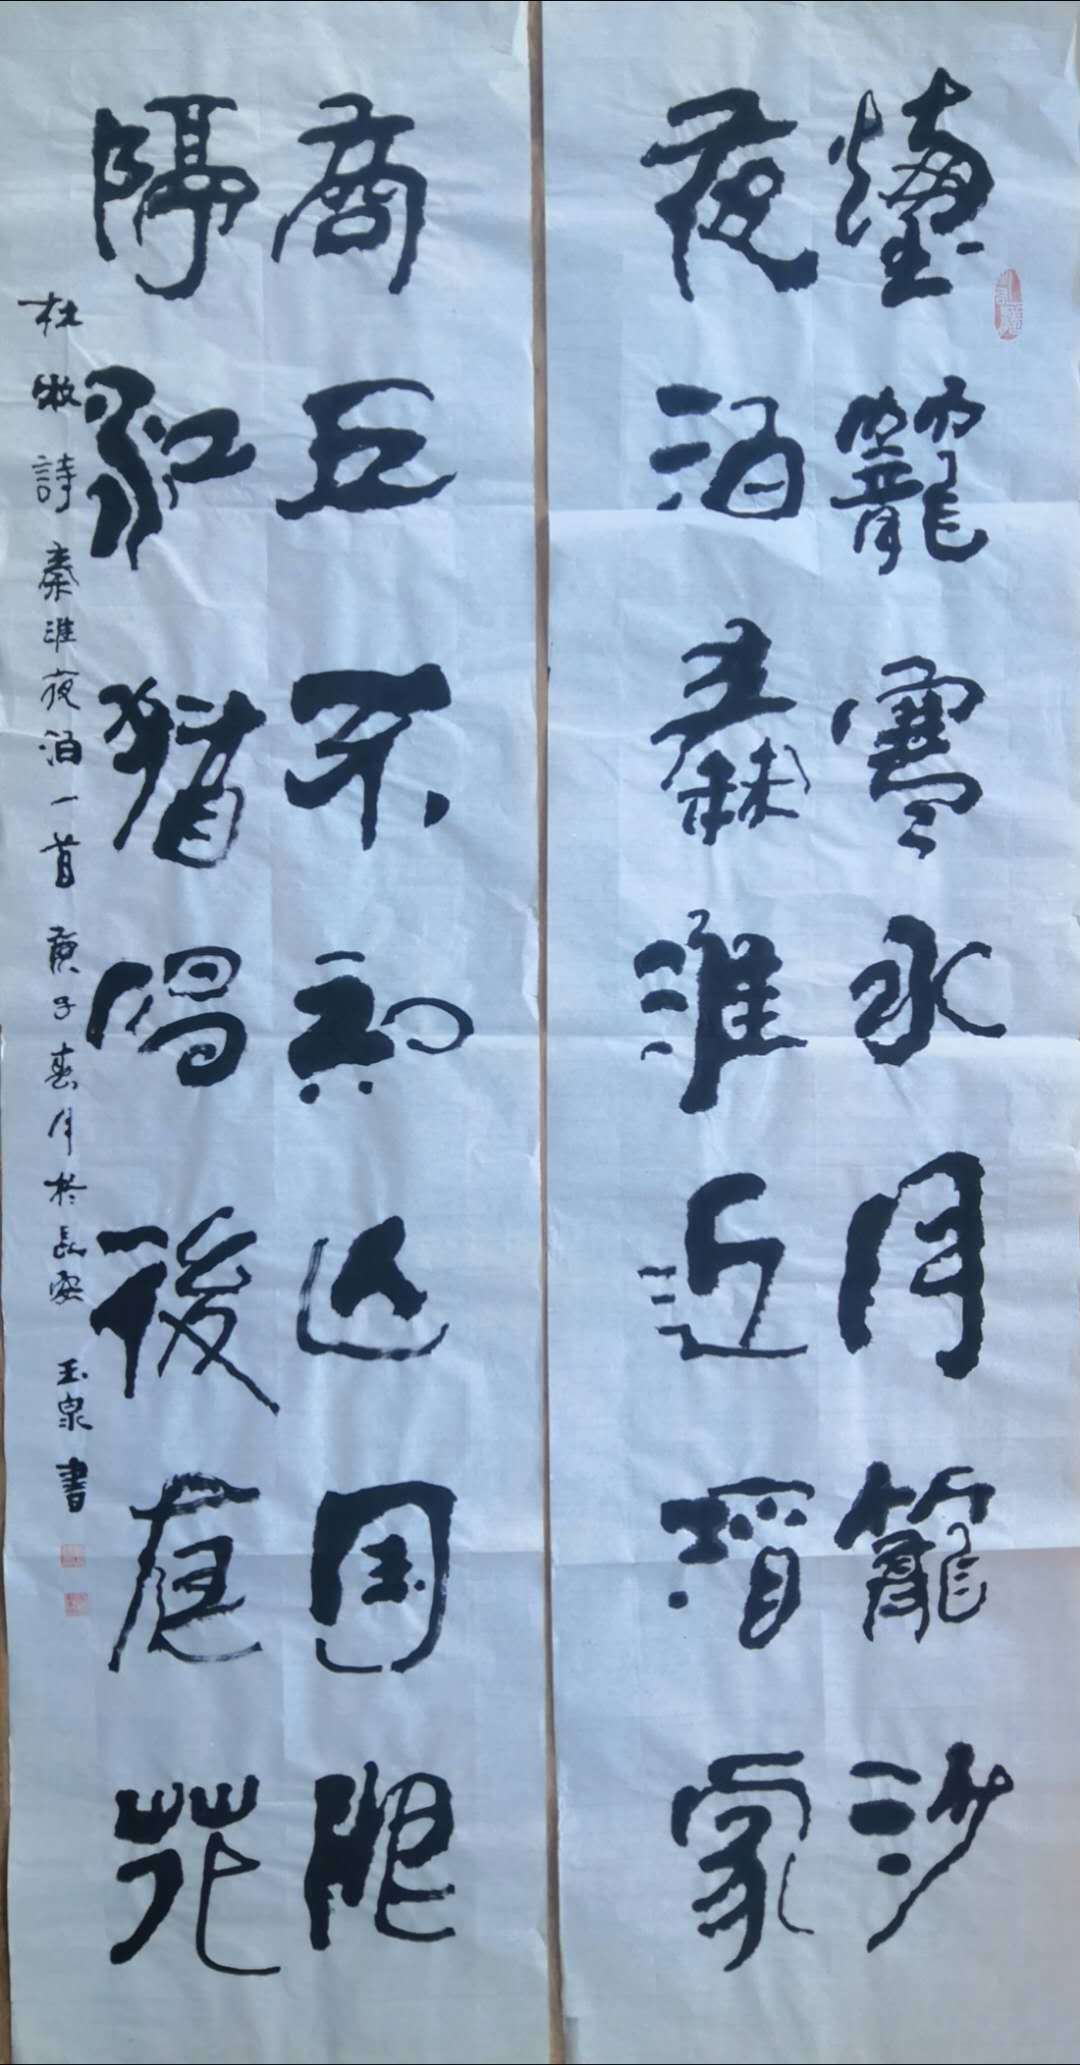 煙籠寒水月籠沙
夜泊秦淮近酒家
商女不知亡國恨
隔江猶唱後庭花
杜牧詩秦淮夜泊一首庚子春月於長安玉泉書